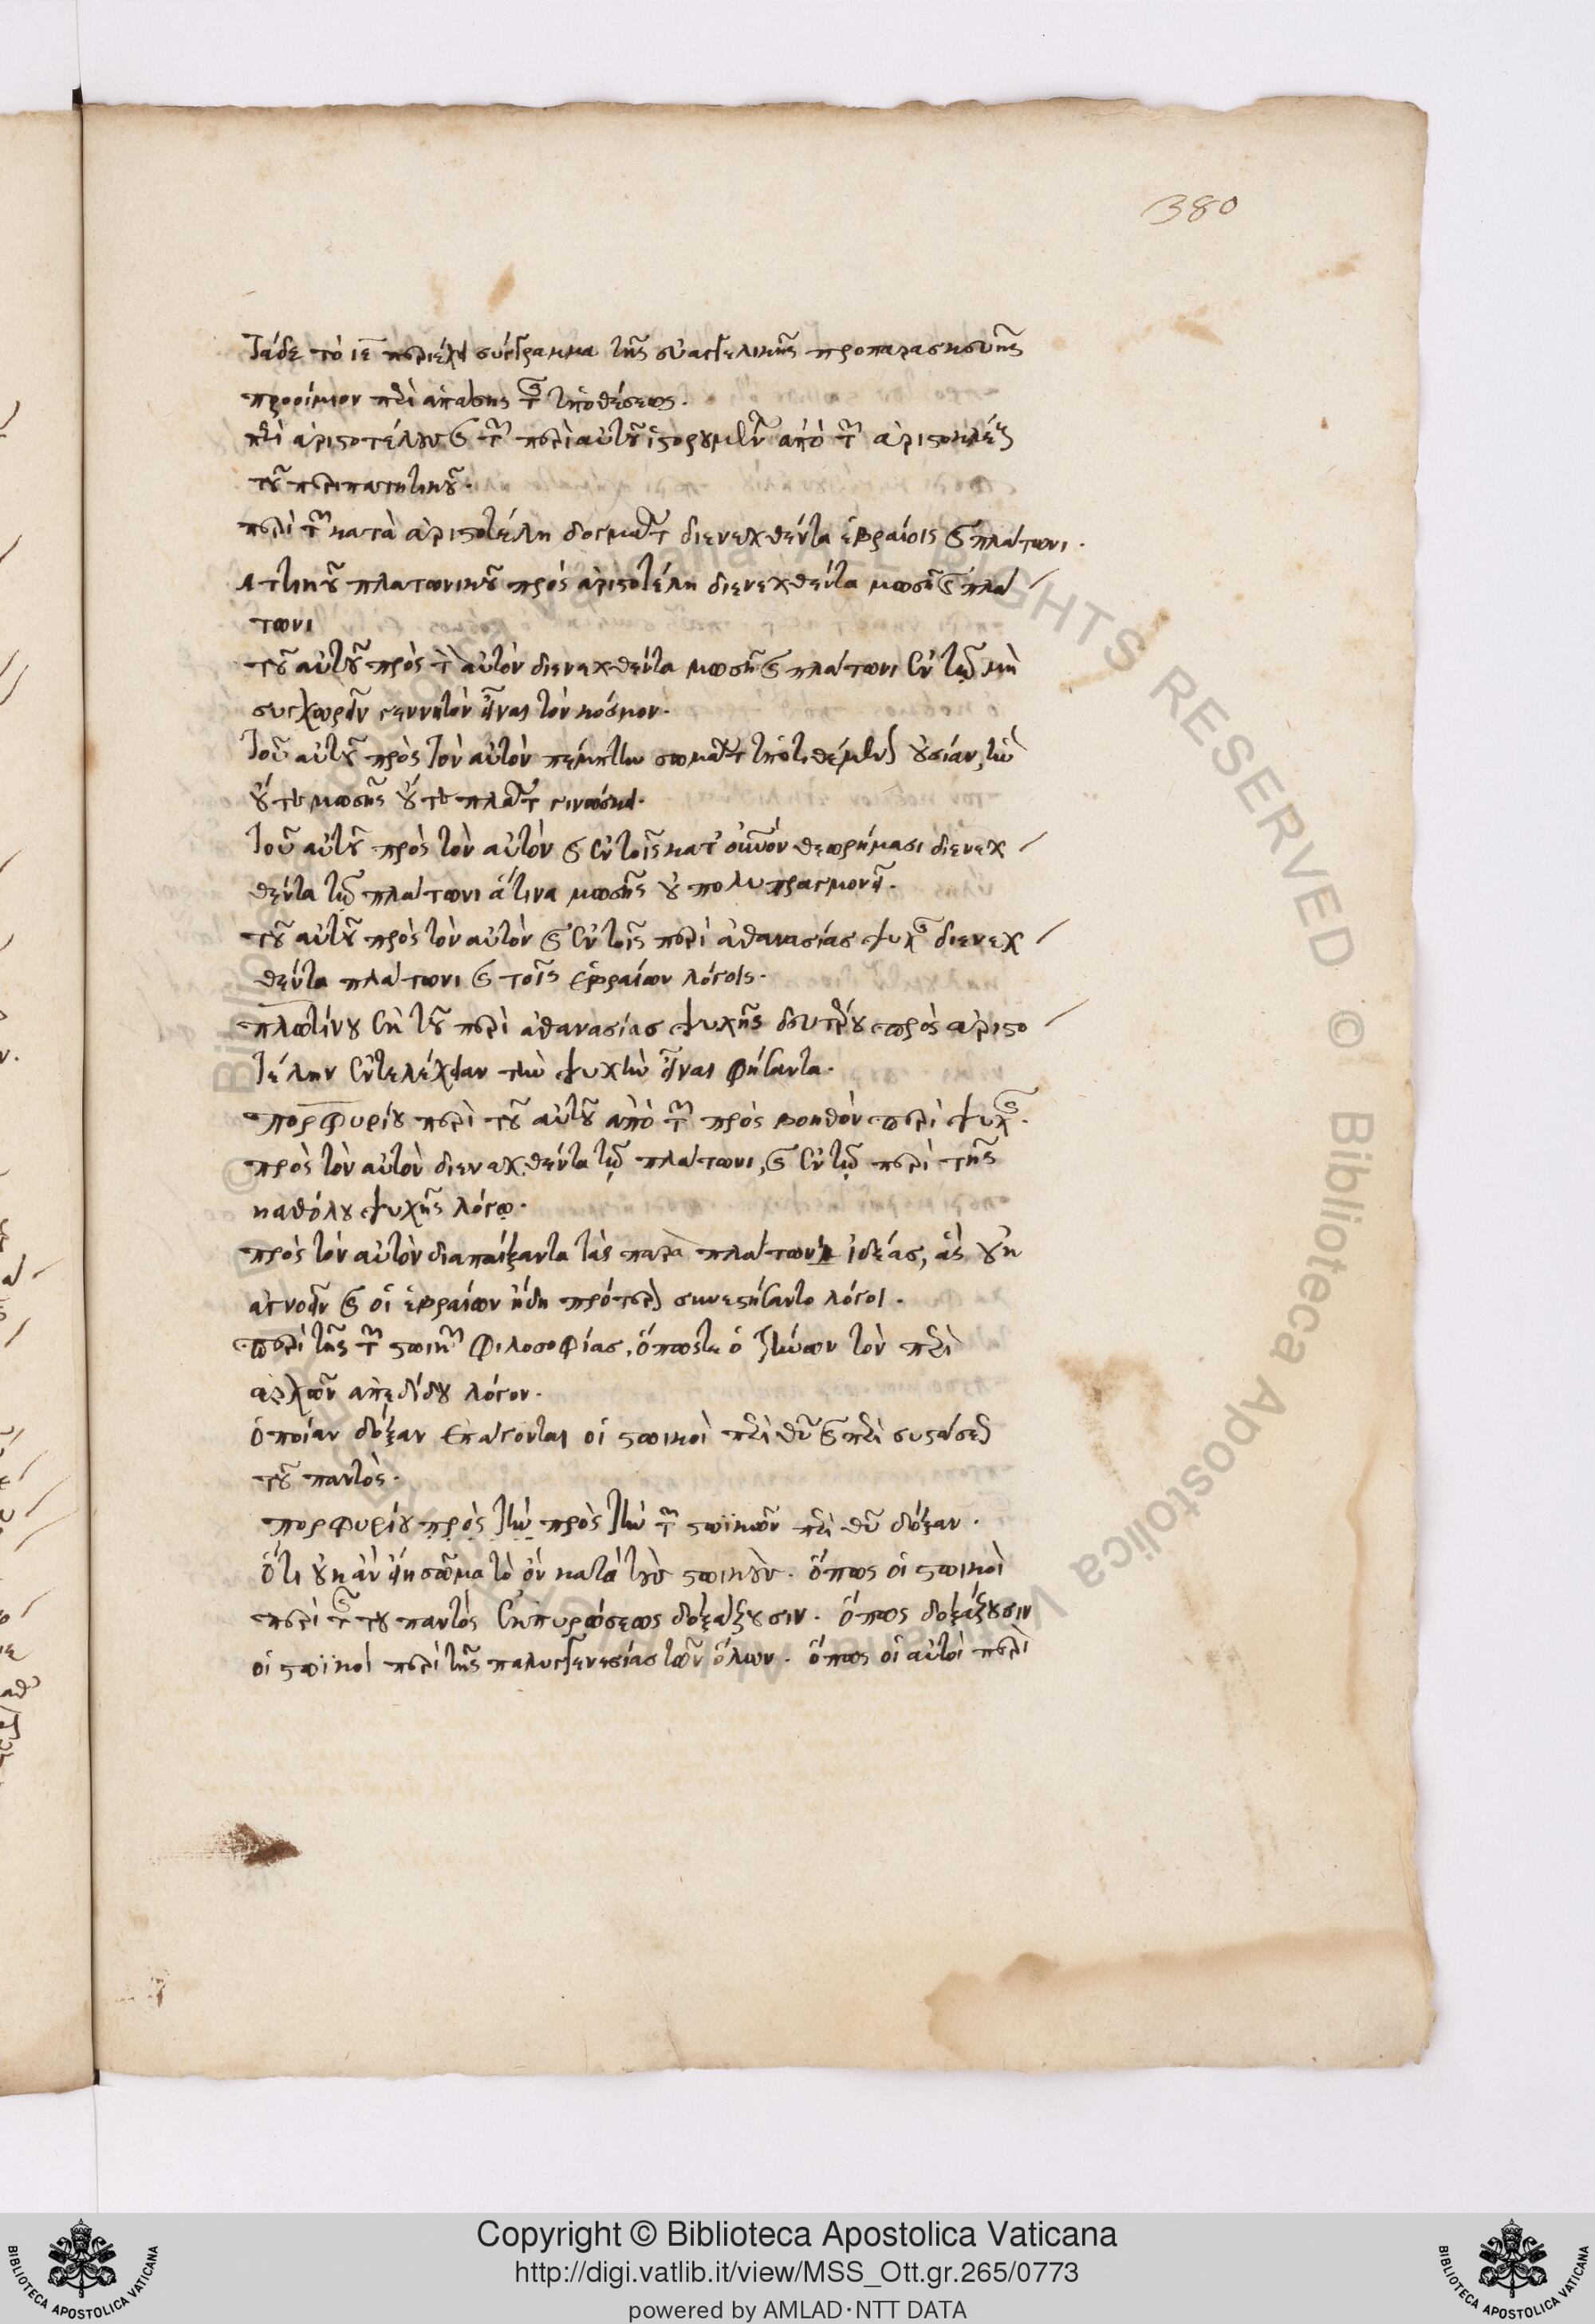 380
Τάδε τὸ ιε περιέχει σύγγραμμα τῆς εὐαγγελικῆς προπαρασκευῆς
προοίμιον περὶ ἁπάσης τῆς ὑποθέσεως.
περὶ ἀριστοτέλους καὶ τῶν περὶ αὐτοῦ ἱστορουμένων ἀπὸ τῶν ἀριστοκλέους
τοῦ περιπατητικοῦ.
περὶ τῶν κατὰ ἀριστοτέλη δογμάτων διενεχθέντα ἑβραίοις καὶ πλάτωνι.
Αττικοῦ πλατωνικοῦ πρὸς ἀριστοτέλη διενεχθέντα μωσῇ καὶ πλά
τωνι
τοῦ αὐτοῦ πρὸς τὸν αὐτὸν διενεχθέντα μωσῇ καὶ πλάτωνι ἐν τῷ μὴ
συγχωρεῖν γεννητὸν εἶναι τὸν κόσμον.
Τοῦ αὐτοῦ πρὸς τὸν αὐτὸν πέμπτην σωμάτων ὑποτιθέμενον οὐσίαν, ἣν
οὔτε μωσῆς οὔτε πλάτων γινώσκει.
Τοῦ αὐτοῦ πρὸς τὸν αὐτὸν καὶ ἐν τοῖς κατ' οὐρανὸν θεωρήμασι διενεχ
θέντα τῷ πλάτωνι ἅτινα μωσῆς οὐ πολυπραγμονεῖ.
τοῦ αὐτοῦ πρὸς τὸν αὐτὸν καὶ ἐν τοῖς περὶ ἀθανασίας ψυχῆς διενεχ
θέντα πλάτωνι καὶ τοῖς ἑβραίων λόγοις.
πλωτίνου ἐκ τοῦ περὶ ἀθανασίας ψυχῆς δευτέρου πρὸς ἀριστο
τέλην ἐντελέχειαν τὴν ψυχὴν εἶναι φήσαντα.
πορφυρίου περὶ τοῦ αὐτοῦ ἀπὸ τῶν πρὸς βοηθὸν περὶ ψυχῆς.
πρὸς τὸν αὐτὸν διενεχθέντα τῷ πλάτωνι, καὶ ἐν τῷ περὶ τῆς
καθόλου ψυχῆς λόγῳ.
πρὸς τὸν αὐτὸν διαπαίξαντα τὰς παρὰ πλάτωνι ἰδέας, ἃς οὐκ
ἀγνοεῖν καὶ οἱ ἑβραίων ἤδη πρότερον συνεστήσαντο λόγοι.
περὶ τῆς τῶν στωικῶν φιλοσοφίας, ὅπως τε ὁ ζήνων τὸν περὶ
ἀρχῶν ἀπεδίδου λόγον.
ὁποίαν δόξαν ἐπάγονται οἱ στωικοὶ περὶ θεοῦ καὶ περὶ συστάσεως
τοῦ παντὸς.
πορφυρίου πρὸς τὴν πρὸς τὴν τῶν στωϊκῶν περὶ θεοῦ δόξαν.
Ὅτι οὐκ ἂν εἴη σῶμα τὸ ὂν κατὰ τοὺς στωικοὺς. ὅπως οἱ στωικοὶ
περὶ τῆς τοῦ παντὸς ἐκπυρώσεως δοξάζουσιν. Ὅπως δοξάζουσιν
οἱ στωϊκοὶ περὶ τῆς παλιγγενεσίας τῶν ὅλων. ὅπως οἱ αὐτοὶ περὶ
Copyright © Biblioteca Apostolica Vaticana
http://digi.vatlib.it/view/MSS_Ott.gr.265/0773
powered by AMLAD·NTT DATA